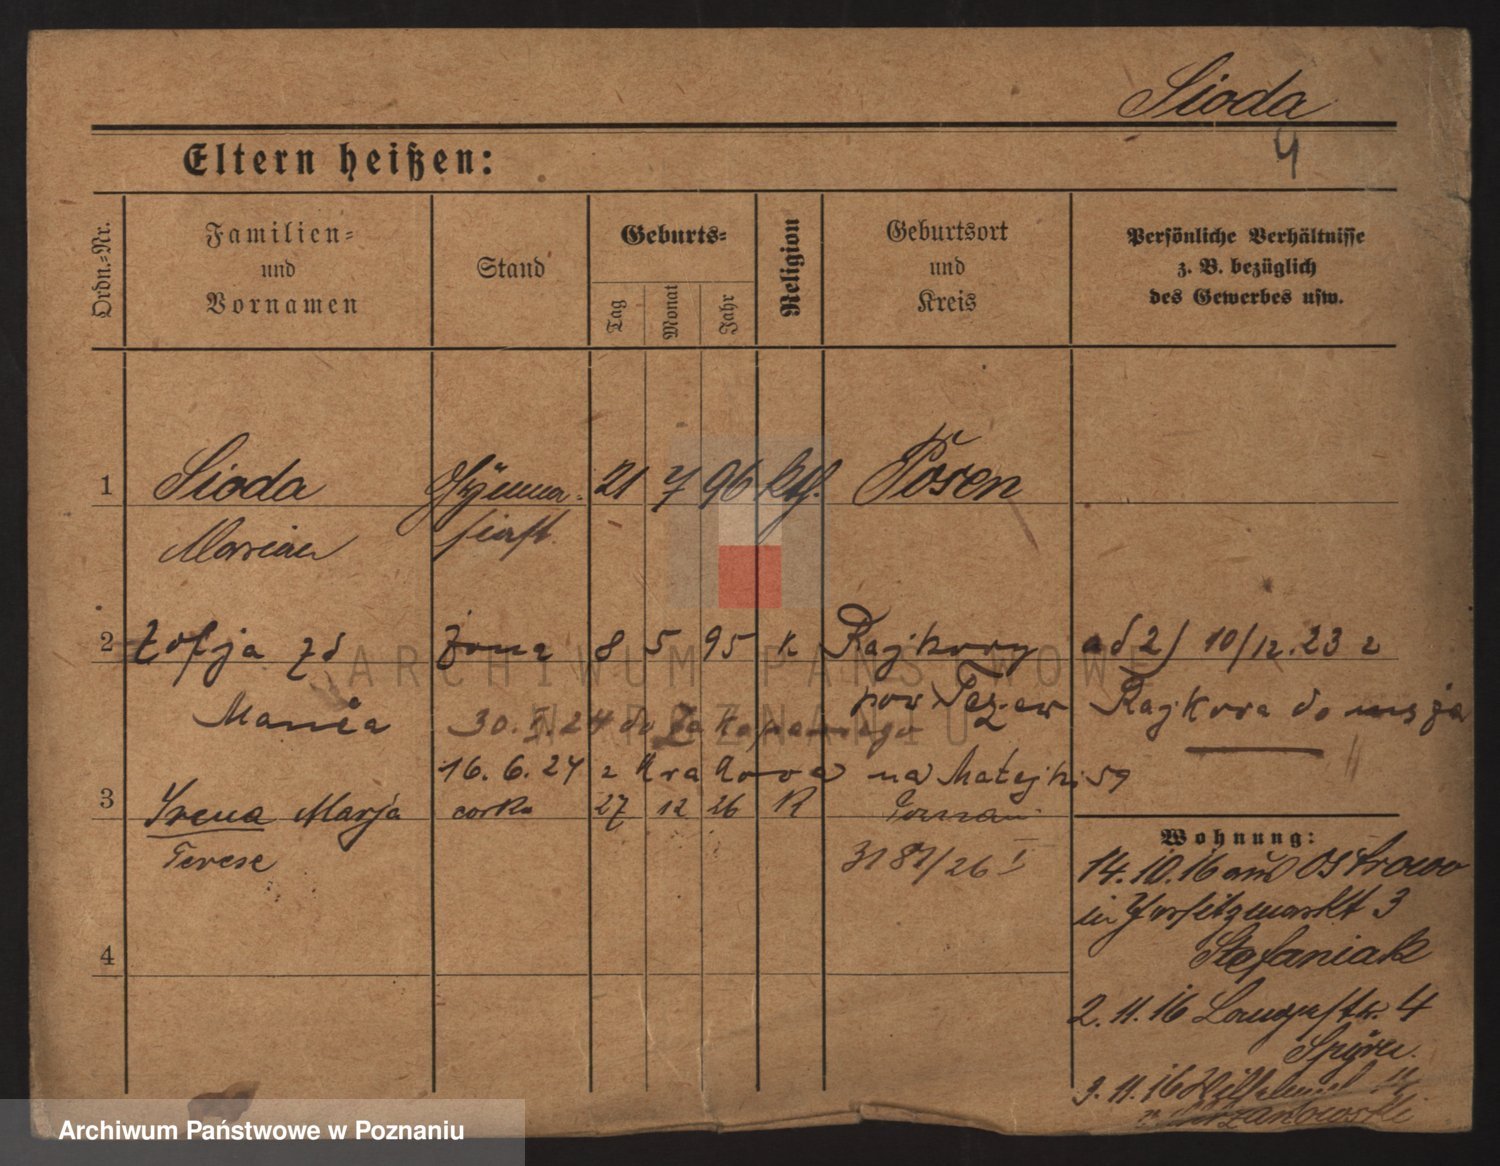 Sioda
4
Eltern heißen:
Ordn.-Nr.
Familien-
und
Vornamen
Stand
Geburts-
Tag
Monat
Jahr
Religion
Geburtsort
und
Kreis
Persönliche Verhältnisse
z. B. bezüglich
des Gewerbes usw.
1 Sioda Gymna- 21 7 96 kth. Posen
Marian siast.
2 Zofja zd żona 8 5 95 k Rajkovy ad 2) 10/12.23 z
Mania pow Tczew Rajkova do
30. 24 do Zakopanego
16.6.24 z Krakova na Matejki 59
3 Irena Marja corka 27 12 26 R Poznań
Terese 3181/26 I
Wohnung:
14.10.16 aus Ostrowo
in 3
Stefaniak
4
2.11.16 Langestr. 4
3.11.16
ARCHIWUM PAŃSTWOWE
W POZNANIU
Archiwum Państwowe w Poznaniu